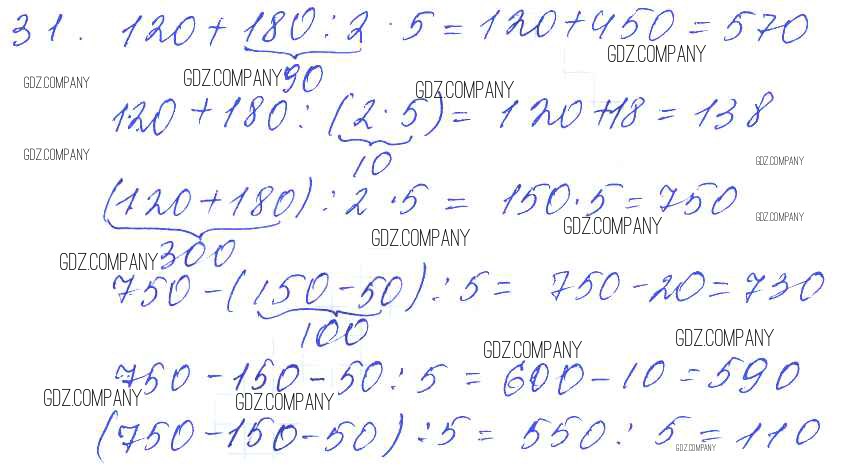 31. 120 + 180 : 2 · 5 = 120 + 450 = 570
GDZ.COMPANY
GDZ.COMPANY GDZ.COMPANY 90 GDZ.COMPANY
120 + 180 : (2 · 5) = 120 + 18 = 138
GDZ.COMPANY 10 GDZ.COMPANY
(120 + 180) : 2 · 5 = 150 · 5 = 750
GDZ.COMPANY
GDZ.COMPANY GDZ.COMPANY
GDZ.COMPANY 300
750 - (150 - 50) : 5 = 750 - 20 = 730
100
GDZ.COMPANY GDZ.COMPANY
750 - 150 - 50 : 5 = 600 - 10 = 590
GDZ.COMPANY GDZ.COMPANY
(750 - 150 - 50) : 5 = 550 : 5 = 110
GDZ.COMPANY